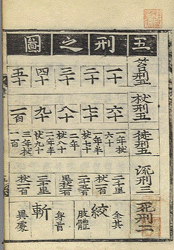 五刑之圖
笞刑五
一十
二十
三十
四十
五十
杖刑五
六十
七十
八十
九十
一百
徒刑五
一年杖六十
一年半杖七十
二年杖八十
二年半杖九十
三年杖一百
流刑三
二千里杖一百
三千里杖一百
死刑二
絞
全其肢體
斬
身首異處